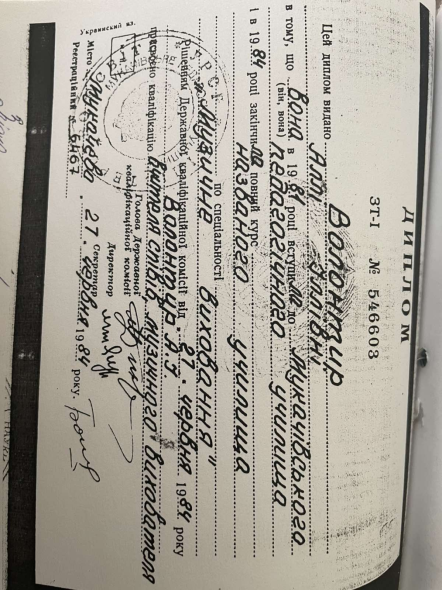 ДИПЛОМ
ЗТ-І № 546603
Цей диплом видано Волонтир
Алі Залівні
в тому, що вона в 1981 році вступила до Мукачівського
(він, вона)
педагогічного училища
і в 1984 році закінчила повний курс
названого училища
по спеціальності
„Музичне виховання"
Рішенням Державної кваліфікаційної комісії від 27. червня 1984 року
Волонтир А.З.
присвоєно кваліфікацію Вчителя співів, музичного вихователя
Голова Державної
кваліфікаційної комісії
Директор
Секретар
Місто Мукачево. 27. червня 1984 року.
Реєстраційний № 6467
Украинский яз.